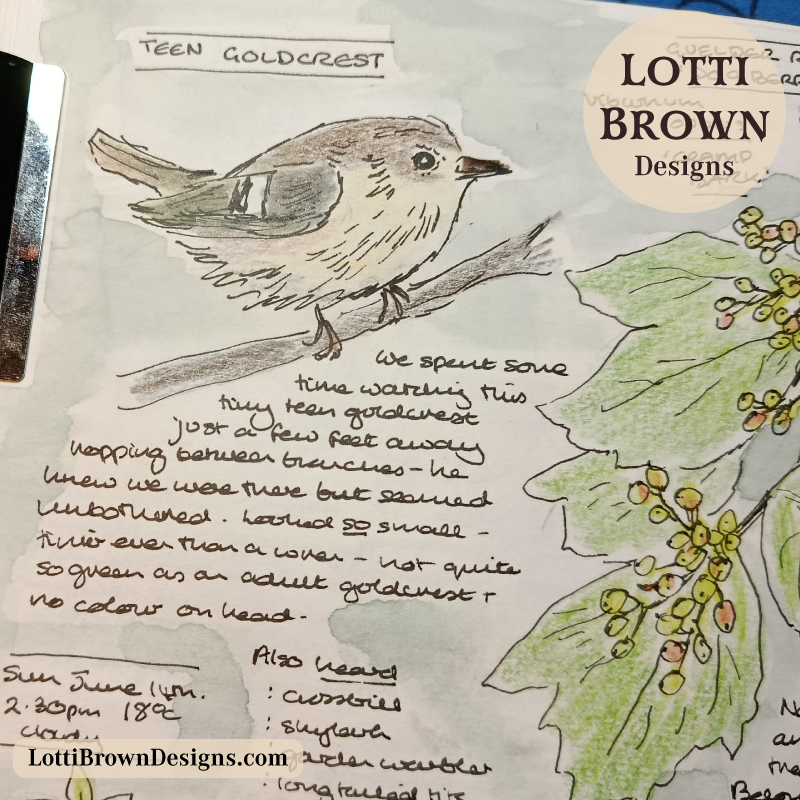 TEEN GOLDCREST
GUELDER R
DOGBERR
Viburnum
CRAMP
BARK
LOTTI
BROWN
Designs
we spent some
time watching this
tiny teen goldcrest
just a few feet away
hopping between branches - he
knew we were there but seemed
unbothered. Looked so small -
tinier even than a wren - not quite
so green as an adult goldcrest +
no colour on head.
Sun June 14th.
2.30pm 18°C
cloudy
Also heard
: crossbill
: skylark
garden warbler
: long tailed tits
No
an
the
Below
LottiBrownDesigns.com